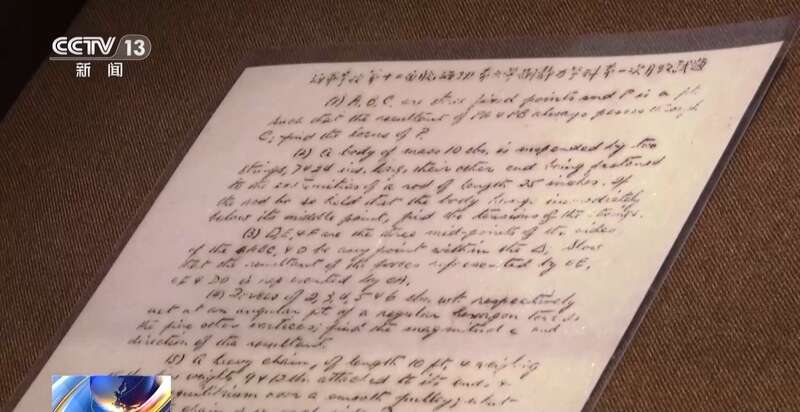 CCTV 13
新闻
(1) A, B, C. are three fixed points and P is a pt.
such that the resultant of PA & PB always passes through
C; find the locus of P.
(2) A body of mass 10 lbs. is suspended by two
strings, 7 & 24 ins. long, their other end being fastened
to the extremities of a rod of length 25 inches. If
the rod be so held that the body hangs immediately
below its middle point, find the tensions of the strings.
(3) D, E, & F are the three mid-points of the sides
of the ABC, & O be any point within the Show
that the resultant of the forces represented by OE,
OF & DO is represented by OA.
(4) Forces of 2, 3, 4, 5 & 6 lbs. wt. respectively
act at an angular pt. of a regular hexagon towards
the five other vertices; find the magnitude and
direction of the resultant.
(5) A heavy chain, of length 10 ft. & weighing
weights 9 & 12 lbs attached to its ends &
equilibrium over a smooth pulley; what